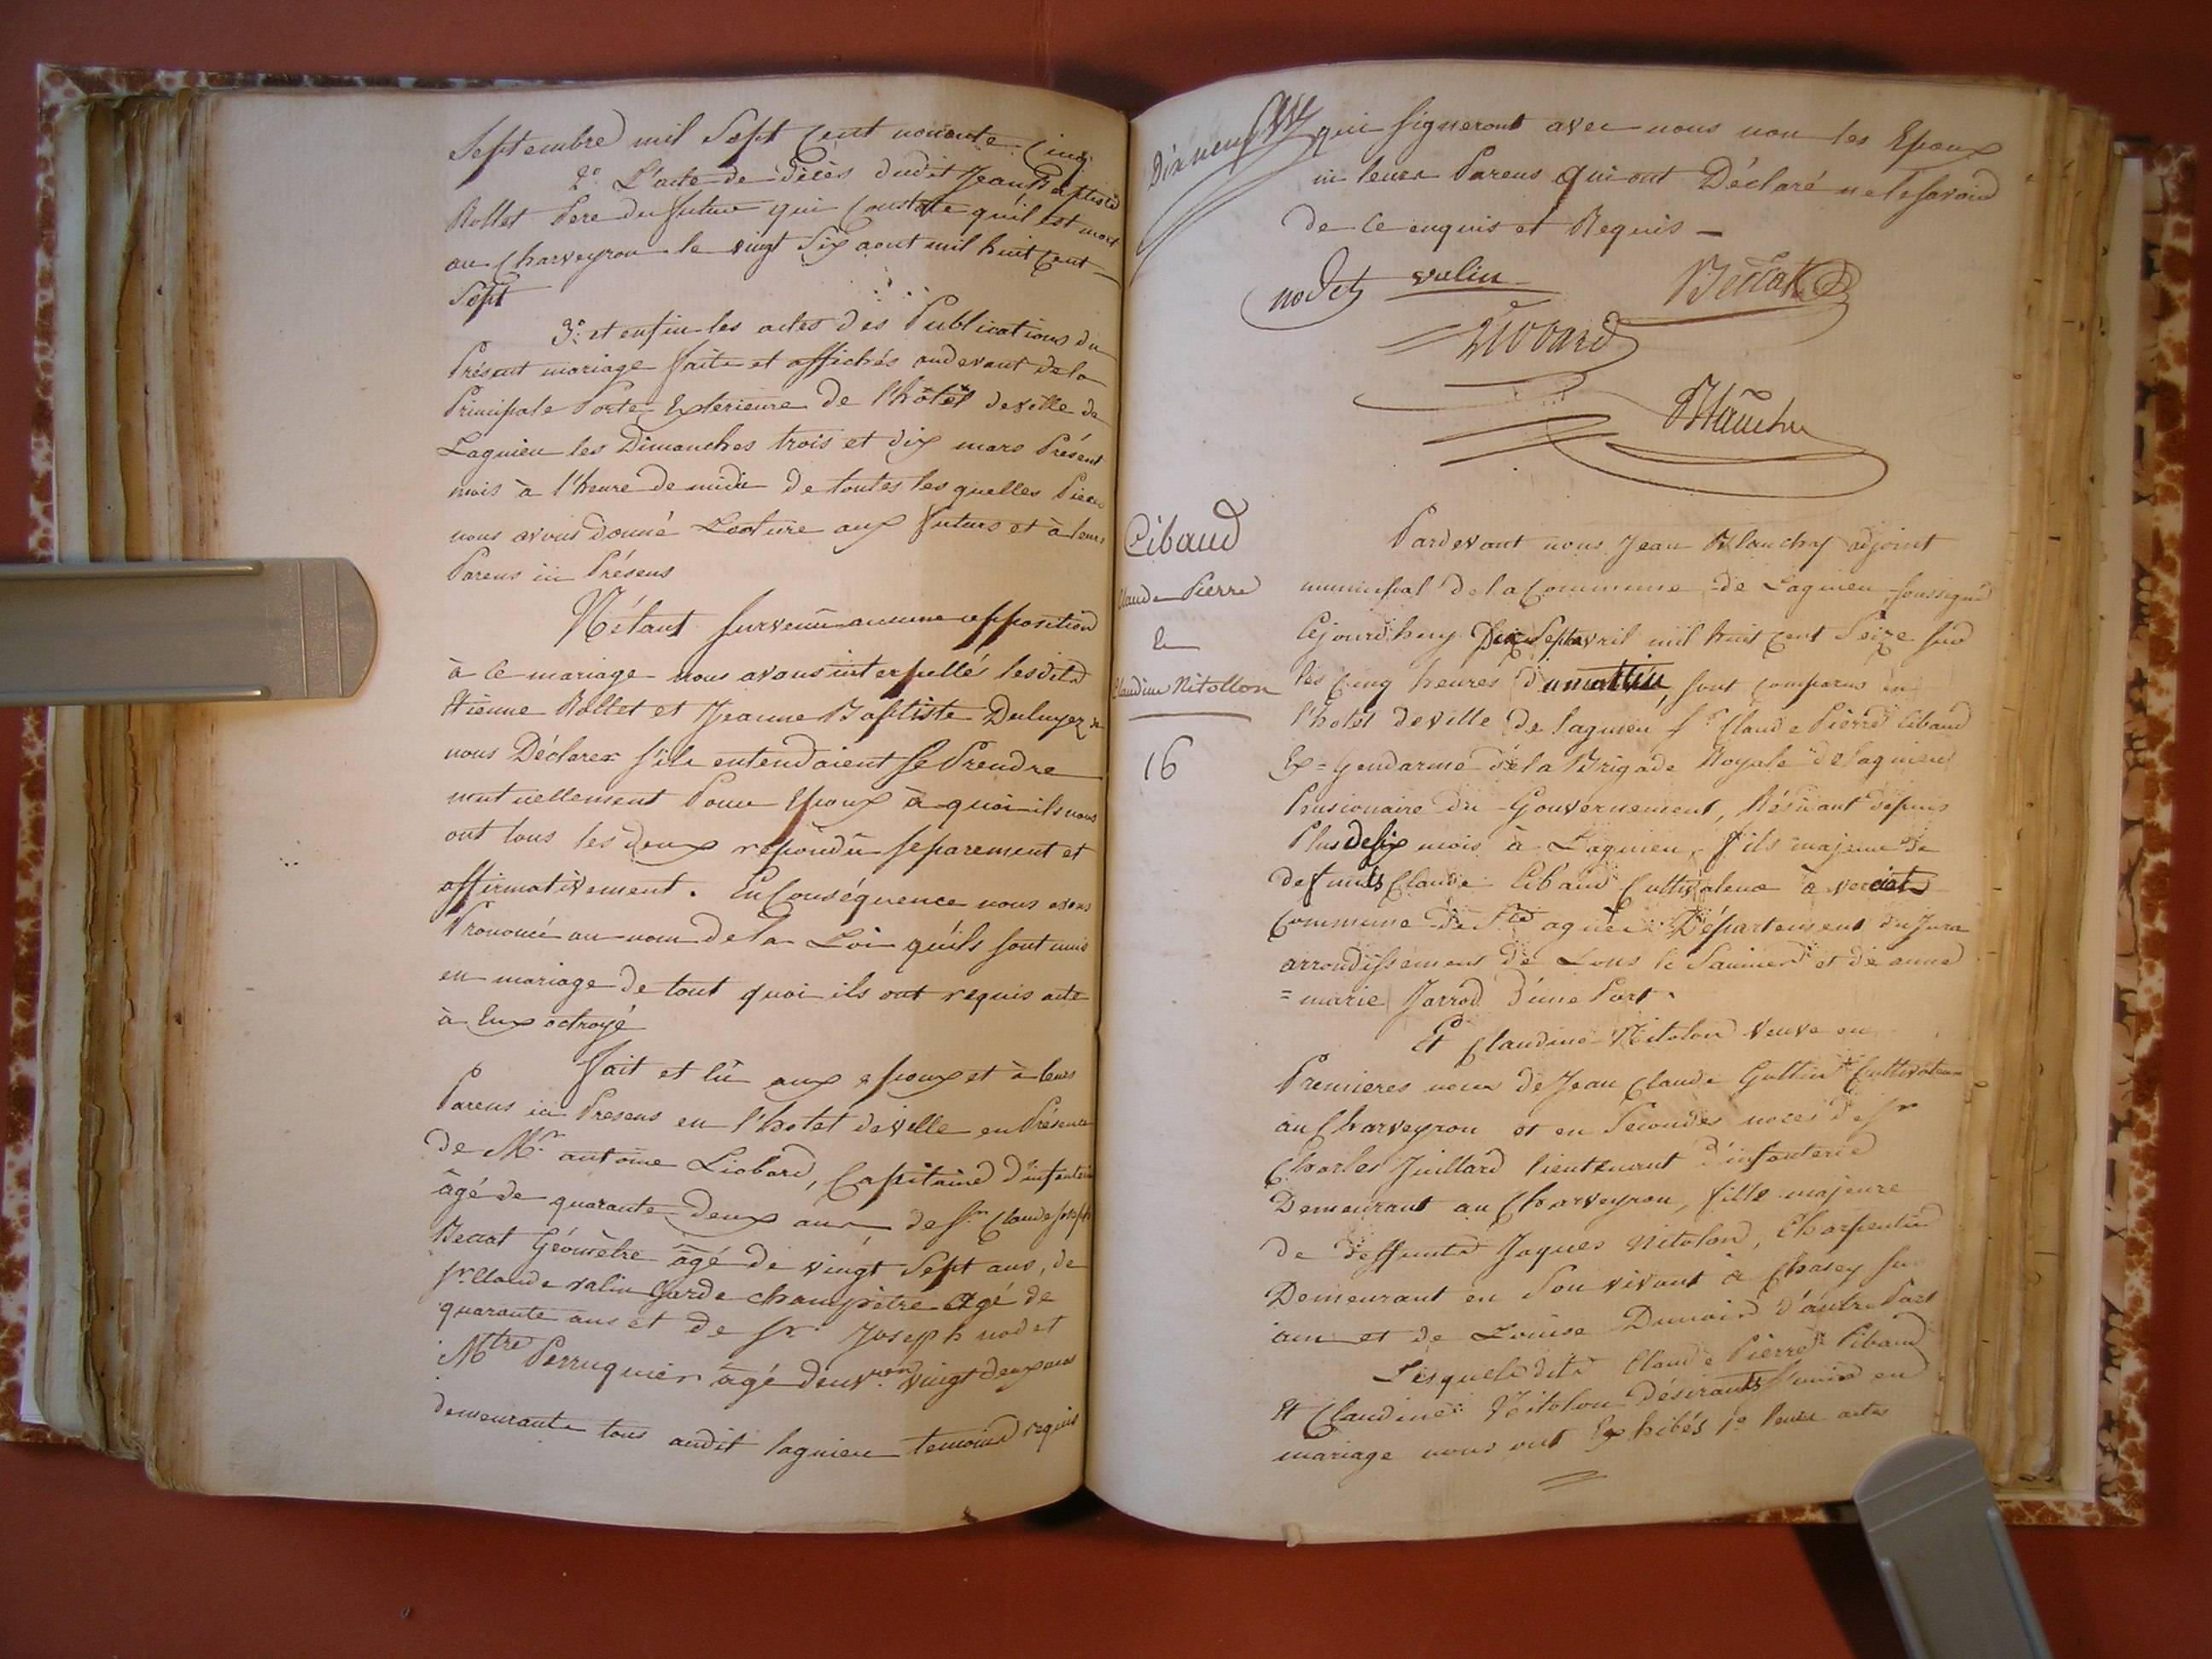 Septembre mil Sept Cent nonante Cinq.
2° L'acte de décès dudit Jean Baptiste
Rollet Pere du futur qui Constate qu'il est mort
au Charveyron le vingt Six aout mil huit Cent
Sept
3° et enfin les actes des Publications du
Présent mariage faite et affichés audevant de la
Principale Porte Exterieure de l'hôtel de ville de
Lagnieu les Dimanches trois et dix mars Présent
mois à l'heure de midi de toutes les quelles Pieces
nous avons donné Lecture aux futurs et à leurs
Parens ici Présens
N'étant survenü aucune opposition
à ce mariage nous avons interpellés lesdits
Etienne Rollet et Jeanne Baptiste de
nous Déclarer s'ils entendaient se Prendre
mutuellement Pour Epoux à quoi ils nous
ont tous les deux répondu separement et
affirmativement. En Conséquence nous avons
Prononcé au nom de la Loi qu'ils sont unis
en mariage de tout quoi ils ont requis acte
à Eux octroyé
fait et lü aux epoux et à leurs
Parens ici Presens en l'hotel de ville en Présence
de Mr antoine Liobard, Capitaine d'infanterie
âgé de quarante deux ans, de Sr Claude Joseph
Beccat Géomètre âgé de vingt Sept ans, de
Sr Claude valin Garde champètre agé de
quarante ans et de Sr Joseph nodet
Mtre Perruquier âgé d'envron vingt deux ans
demeurants tous audit lagnieu temoins requis
Dixneuf
qui signeront avec nous non les Epoux
ni leurs Parens qui ont Déclaré ne le savoir
de ce enquis et Requis –
nodet valin Beccat
Liobard
Blanchy
Cibaud
Claude Pierre
Claudine Nitollon
16
Pardevant nous Jean Blanchy adjoint
municipal de la Commune de Lagnieu soussigné
Cejourdhuy Dix Sept avril mil huit Cent Seize sur
les Cinq heures du matin, sont comparus en
l'hotel de ville de lagnieu Sr Claude Pierre Cibaud
Ex=Gendarme de la Brigade Royale de lagnieu
Pensionaire du Gouvernement, Résidant depuis
Plus de six mois à Lagnieu, fils majeur de
defunts Claude Cibaud Cultivateur à
Commune de St agnès Département du Jura
arrondissement de Lons le Saunier et de anne
=marie Jarrod d'une Part.
Et Claudine Nitolon Veuve en
Premieres noces de Jean Claude Guttin Cultivateur
au Charveyron et en Secondes noces de Sr
Charles Juillard lieutenant d'infanterie
Demeurant au Charveyron, fille majeure
de deffunts Jaques Nitolon, Charpentier
Demeurant en Son vivant à Chasey sur
ain et de Louise Dunoir d'autre Part
Lesquels dits Claude Pierre Cibaud
Et Claudine Nitolon Désirants s'unir en
mariage nous ont Exhibés 1° leurs actes